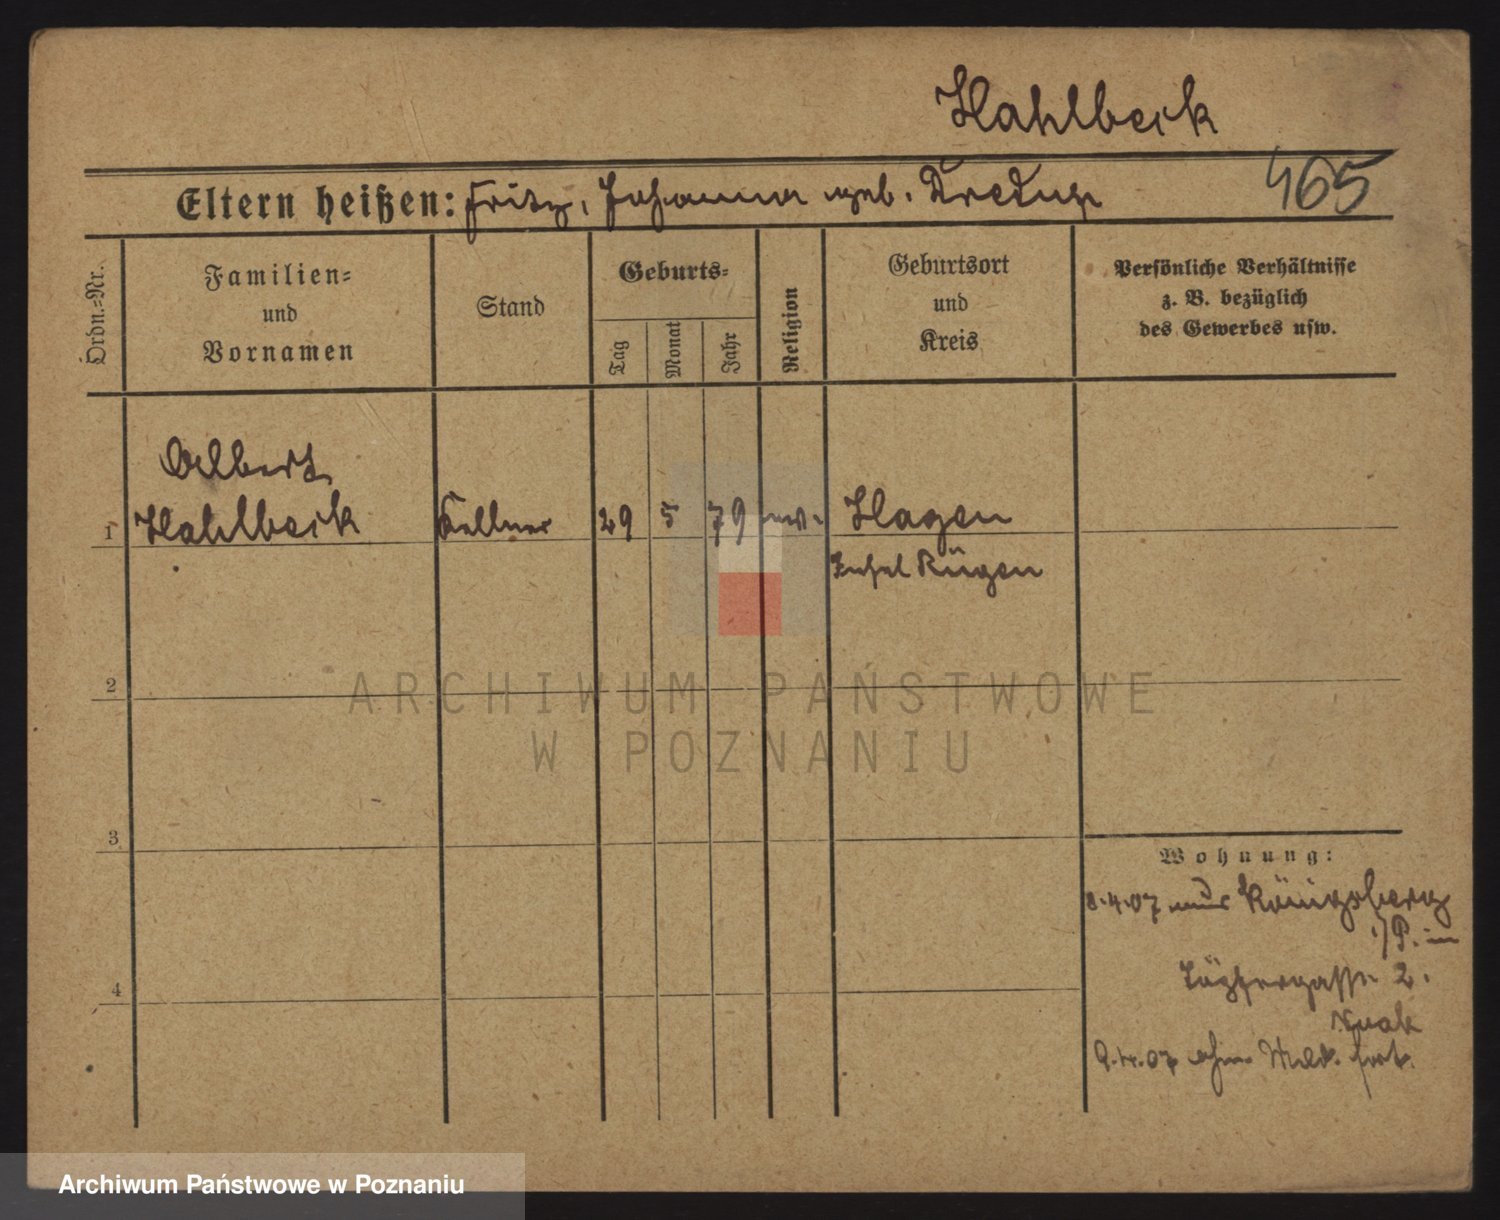 Hahlbeck
465
Eltern heißen: Fritz, Johanna geb. Dredup
Ordn.=Nr.
Familien=
und
Vornamen
Stand
Geburts=
Tag
Monat
Jahr
Religion
Geburtsort
und
Kreis
Persönliche Verhältnisse
z. B. bezüglich
des Gewerbes usw.
Albert
1 Hahlbeck Kellner 29 5 79 ev. Hagen
Insel Rügen
2
3
4
Wohnung:
8.4.07 aus Königsberg
i/P. in
Töpfergasse 2.
9.4.07 ohne Meld. fort.
ARCHIWUM PAŃSTWOWE
W POZNANIU
Archiwum Państwowe w Poznaniu